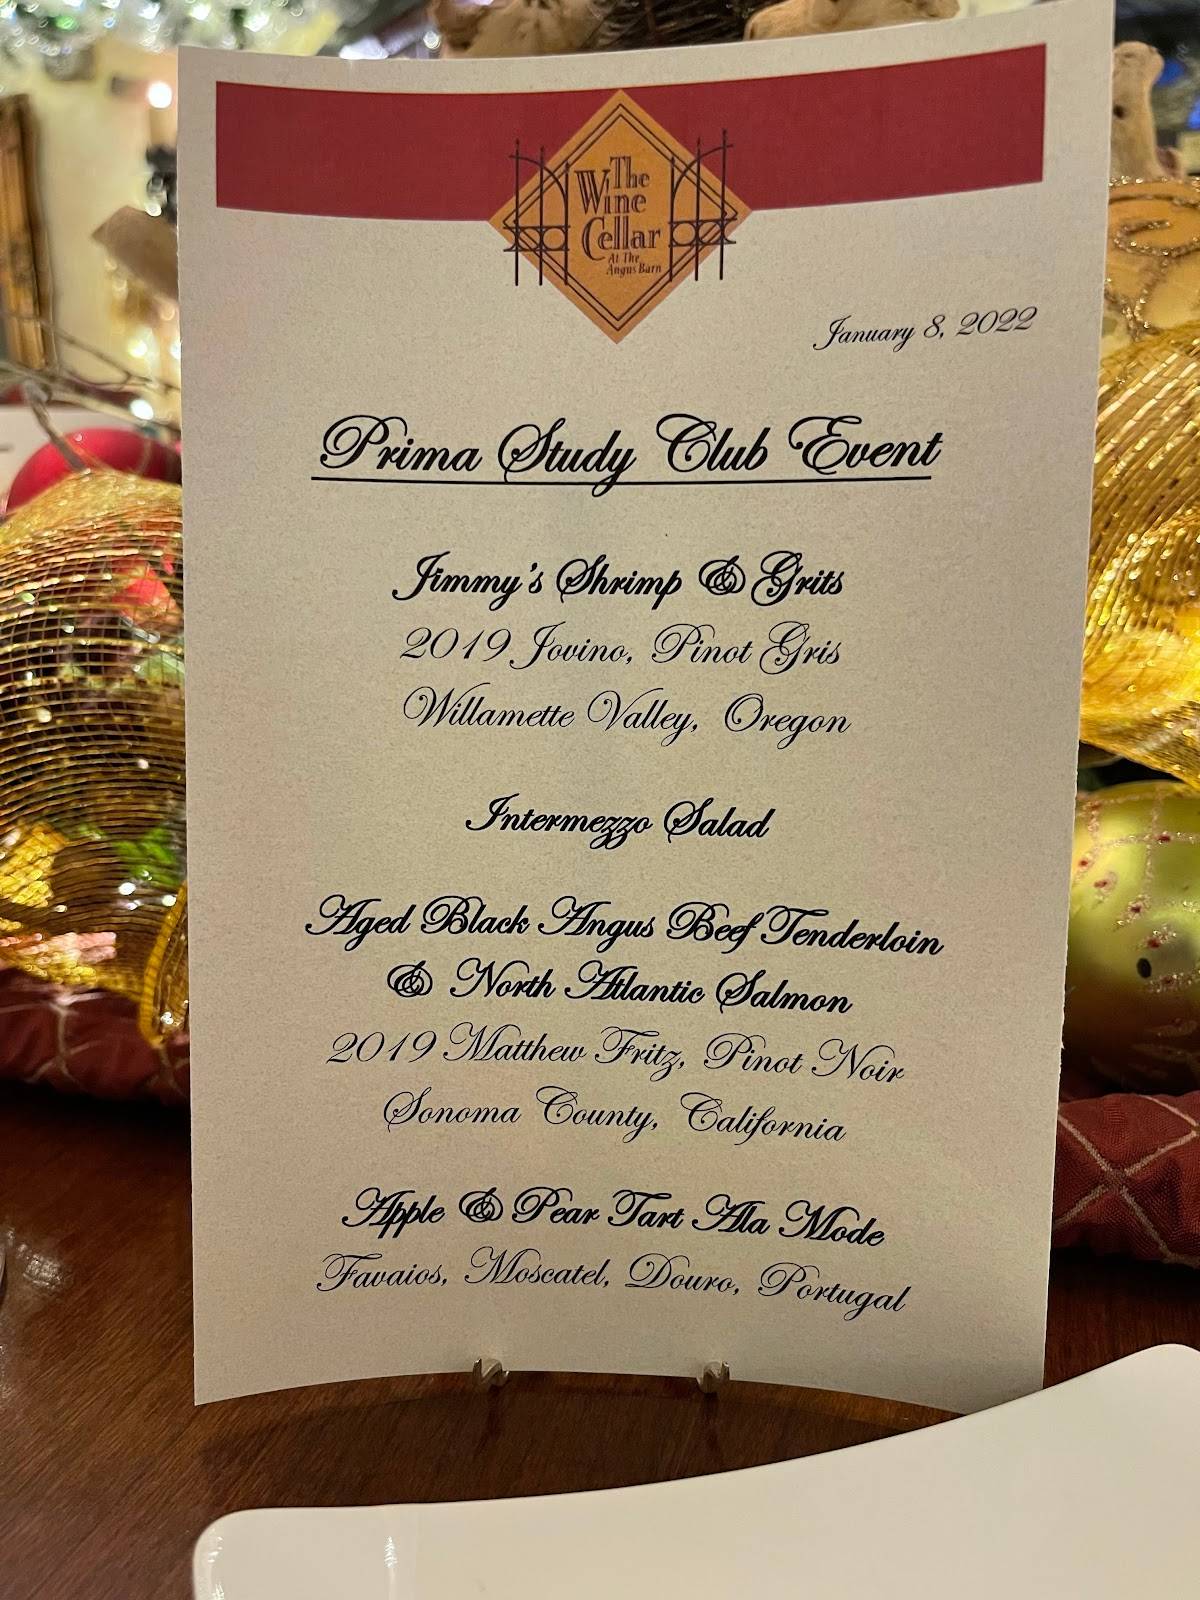 The
Wine
Cellar
At The
Angus Barn
January 8, 2022
Prima Study Club Event
Jimmy's Shrimp & Grits
2019 Jovino, Pinot Gris
Willamette Valley, Oregon
Intermezzo Salad
Aged Black Angus Beef Tenderloin
& North Atlantic Salmon
2019 Matthew Fritz, Pinot Noir
Sonoma County, California
Apple & Pear Tart Ala Mode
Favaios, Moscatel, Douro, Portugal